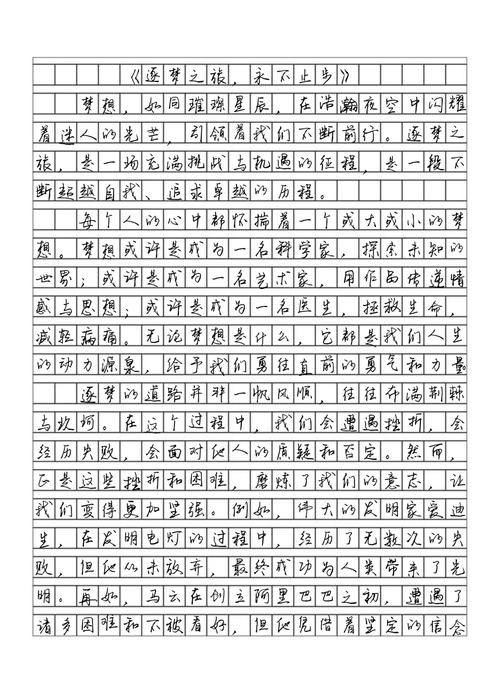 《逐梦之旅，永不止步》
梦想，如同璀璨星辰，在浩瀚夜空中闪耀
着迷人的光芒，引领着我们不断前行。逐梦之
旅，是一场充满挑战与机遇的征程，是一段不
断超越自我、追求卓越的历程。
每个人的心中都怀揣着一个或大或小的梦
想。梦想或许是成为一名科学家，探索未知的
世界；或许是成为一名艺术家，用作品传递情
感与思想；或许是成为一名医生，拯救生命，
减轻病痛。无论梦想是什么，它都是我们人生
的动力源泉，给予我们勇往直前的勇气和力量
逐梦的道路并非一帆风顺，往往布满荆棘
与坎坷。在这个过程中，我们会遭遇挫折，会
经历失败，会面对他人的质疑和否定。然而，
正是这些挫折和困难，磨炼了我们的意志，让
我们变得更加坚强。例如，伟大的发明家爱迪
生，在发明电灯的过程中，经历了无数次的失
败，但他从未放弃，最终成功为人类带来了光
明。再如，马云在创立阿里巴巴之初，遭遇了
诸多困难和不被看好，但他凭借着坚定的信念